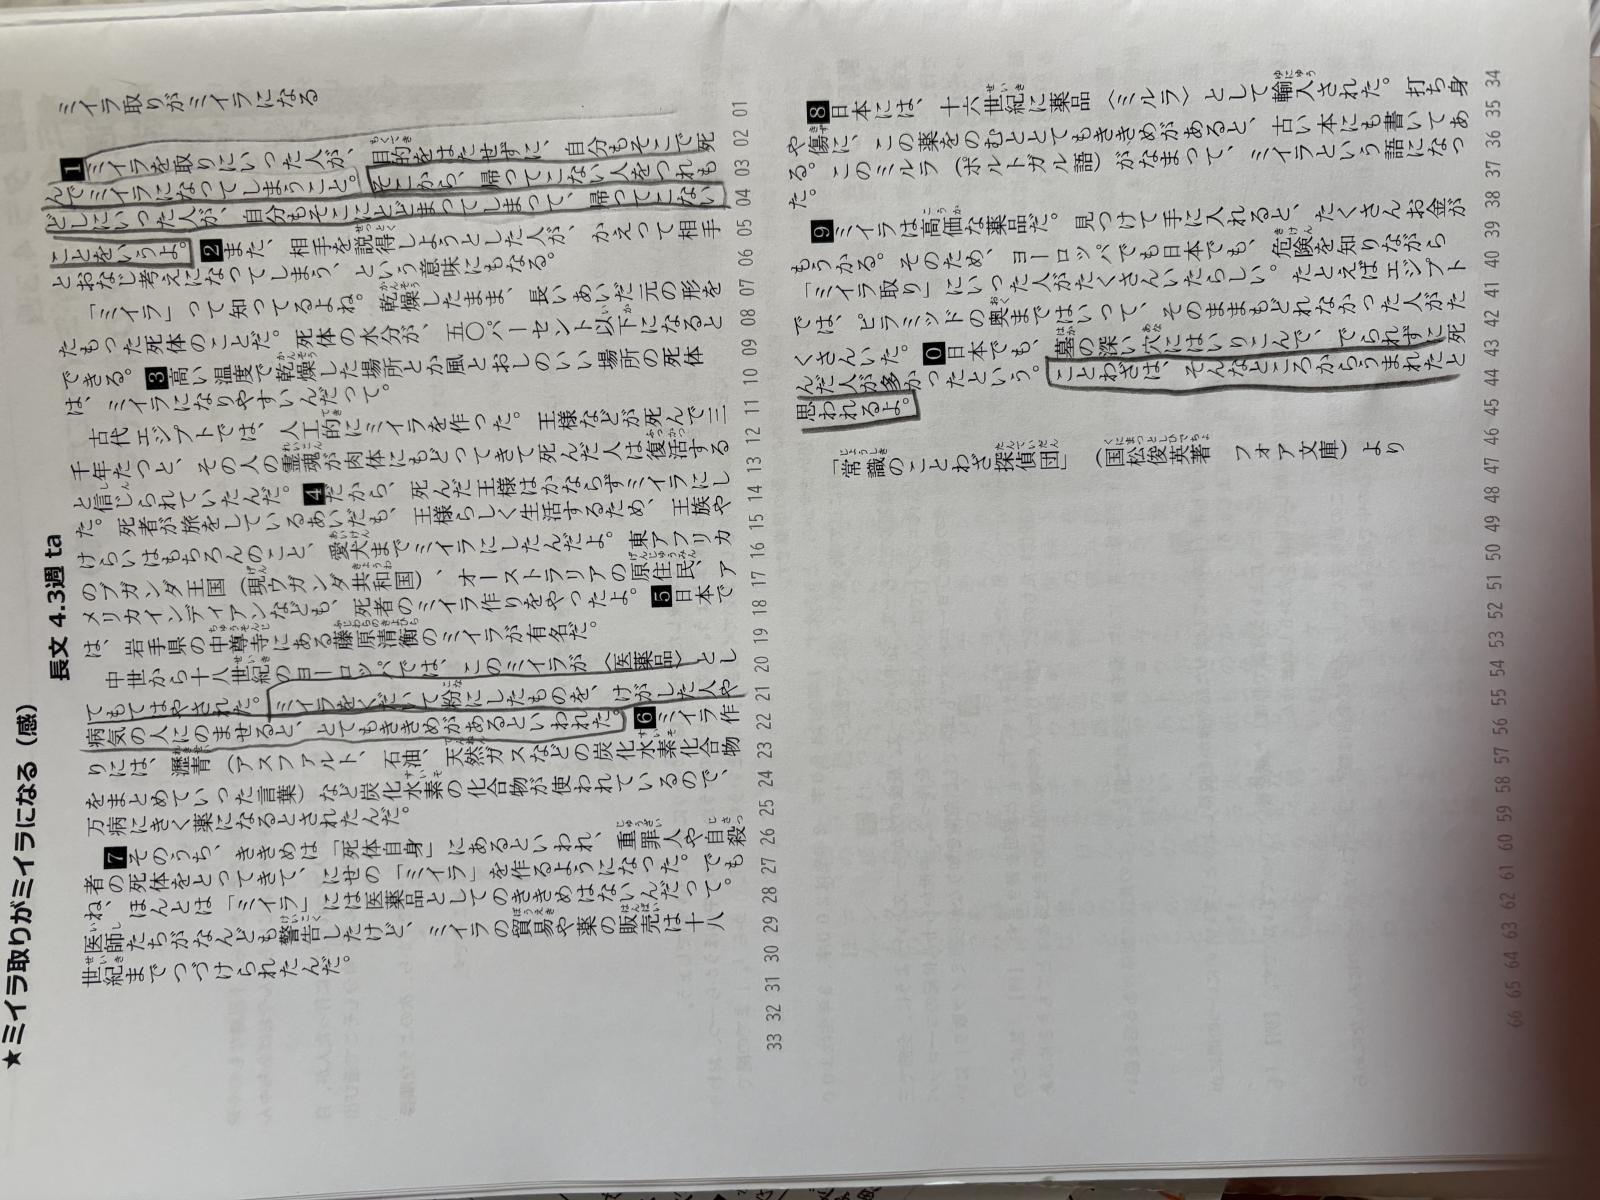 ★ミイラ取りがミイラになる（感）
長文 4.3週 ta
ミイラ取りがミイラになる
1ミイラを取りにいった人が、目的をはたせずに、自分もそこで死
んでミイラになってしまうこと。そこから、帰ってこない人をつれも
どしにいった人が、自分もそこにとどまってしまって、帰ってこない
ことをいうよ。2また、相手を説得しようとした人が、かえって相手
とおなじ考えになってしまう、という意味にもなる。
「ミイラ」って知ってるよね。乾燥したまま、長いあいだ元の形を
たもった死体のことだ。死体の水分が、五〇パーセント以下になると
できる。3高い温度で乾燥した場所とか風とおしのいい場所の死体
は、ミイラになりやすいんだって。
古代エジプトでは、人工的にミイラを作った。王様などが死んで三
千年たつと、その人の霊魂が肉体にもどってきて死んだ人は復活する
と信じられていたんだ。4だから、死んだ王様はかならずミイラにし
た。死者が旅をしているあいだも、王様らしく生活するため、王族や
けらいはもちろんのこと、愛犬までミイラにしたんだよ。東アフリカ
のブガンダ王国（現ウガンダ共和国）、オーストラリアの原住民、ア
メリカインディアンなども、死者のミイラ作りをやったよ。5日本で
は、岩手県の中尊寺にある藤原清衡のミイラが有名だ。
中世から十八世紀のヨーロッパでは、このミイラが〈医薬品〉とし
てもてはやされた。ミイラをくだいて粉にしたものを、けがした人や
病気の人にのませると、とてもききめがあるといわれた。6ミイラ作
りには、瀝青（アスファルト、石油、天然ガスなどの炭化水素化合物
をまとめていった言葉）など炭化水素の化合物が使われているので、
万病にきく薬になるとされたんだ。
7そのうち、ききめは「死体自身」にあるといわれ、重罪人や自殺
者の死体をとってきて、にせの「ミイラ」を作るようになった。でも
ね、ほんとは「ミイラ」には医薬品としてのききめはないんだって。
医師たちがなんども警告したけど、ミイラの貿易や薬の販売は十八
世紀までつづけられたんだ。
01 02 03 04 05 06 07 08 09 10 11 12 13 14 15 16 17 18 19 20 21 22 23 24 25 26 27 28 29 30 31 32 33
8日本には、十六世紀に薬品〈ミルラ〉として輸入された。打ち身
や傷に、この薬をのむととてもききめがあると、古い本にも書いてあ
る。このミルラ（ポルトガル語）がなまって、ミイラという語になっ
た。
9ミイラは高価な薬品だ。見つけて手に入れると、たくさんお金が
もうかる。そのため、ヨーロッパでも日本でも、危険を知りながら
「ミイラ取り」にいった人がたくさんいたらしい。たとえばエジプト
では、ピラミッドの奥まではいって、そのままもどれなかった人がた
くさんいた。0日本でも、墓の深い穴にはいりこんで、でられずに死
んだ人が多かったという。ことわざは、そんなところからうまれたと
思われるよ。
「常識のことわざ探偵団」（国松俊英著　フォア文庫）より
34 35 36 37 38 39 40 41 42 43 44 45 46 47 48 49 50 51 52 53 54 55 56 57 58 59 60 61 62 63 64 65 66